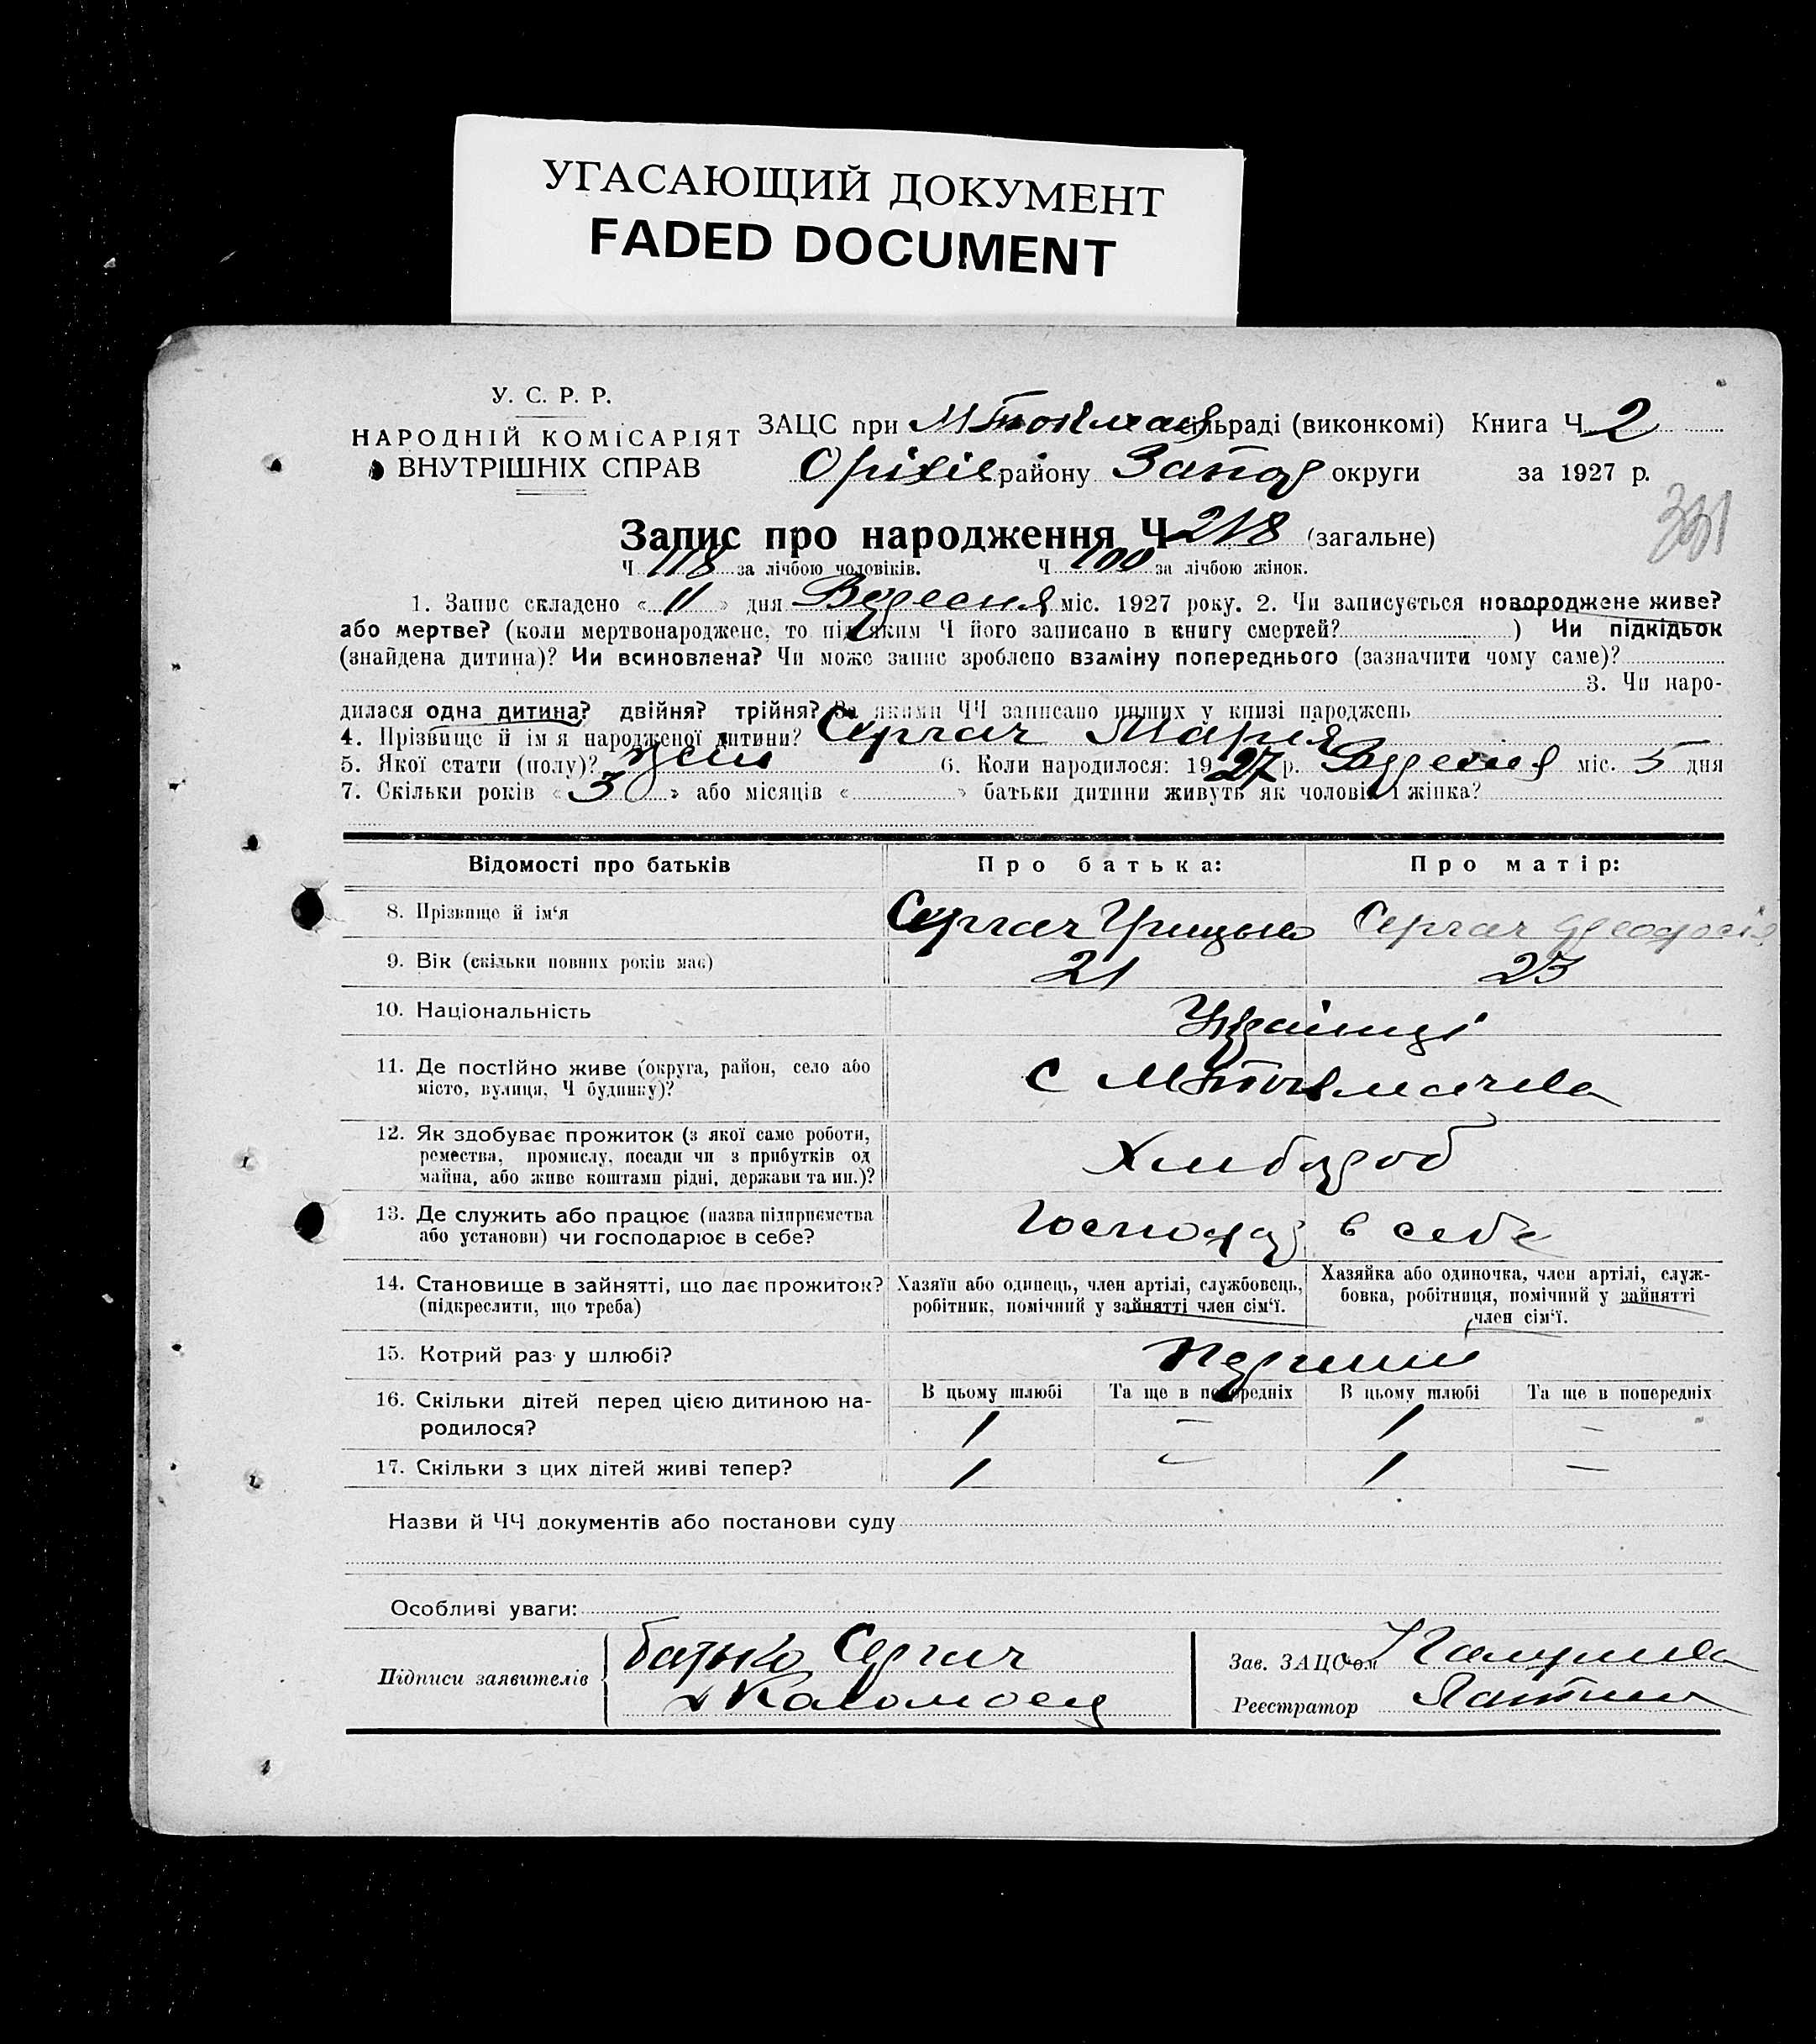 УГАСАЮЩИЙ ДОКУМЕНТ
FADED DOCUMENT
У. С. Р. Р.
НАРОДНІЙ КОМІСАРІЯТ
ВНУТРІШНІХ СПРАВ
ЗАЦС при М Токмач сільраді (виконкомі) Книга Ч 2
Оріхів району Запор округи за 1927 р.
331
Запис про народження Ч 218 (загальне)
Ч 118 за лічбою чоловіків. Ч 100 за лічбою жінок.
1. Запис складено « 11 » дня Вересня міс. 1927 року. 2. Чи записується новороджене живе?
або мертве? (коли мертвонароджене, то під яким Ч його записано в книгу смертей? ) Чи підкідьок
(знайдена дитина)? Чи всиновлена? Чи може запис зроблено взаміну попереднього (зазначити чому саме)?
3. Чи наро-
дилася одна дитина? двійня? трійня? За якими ЧЧ записано инших у книзі народжень
4. Прізвище й ім'я народженої дитини? Сергач Мария
5. Якої стати (полу)? жін 6. Коли народилося: 1927 р. Вересня міс. 5 дня
7. Скільки років « 3 » або місяців « » батьки дитини живуть як чоловік і жінка?
Відомості про батьків Про батька: Про матір:
8. Прізвище й ім'я Сергач Грицько Сергач Феодосія
9. Вік (скільки повних років має) 21 23
10. Національність Українці
11. Де постійно живе (округа, район, село або
місто, вулиця, Ч будинку)? с М Токмачка
12. Як здобуває прожиток (з якої саме роботи,
ремества, промислу, посади чи з прибутків од
майна, або живе коштами рідні, держави та ин.)? Хлибороб
13. Де служить або працює (назва підприємства
або установи) чи господарює в себе? Господар в себе
14. Становище в зайнятті, що дає прожиток?
(підкреслити, що треба)
Хазяїн або одинець, член артілі, службовець,
робітник, помічний у зайнятті член сім'ї.
Хазяйка або одиночка, член артілі, служ-
бовка, робітниця, помічний у зайнятті
член сім'ї.
15. Котрий раз у шлюбі? Перший
16. Скільки дітей перед цією дитиною на-
родилося?
В цьому шлюбі Та ще в попередніх В цьому шлюбі Та ще в попередніх
1 — 1 —
17. Скільки з цих дітей живі тепер? 1 — 1 —
Назви й ЧЧ документів або постанови суду
Особливі уваги:
Підписи заявителів
батько Сергач
Коломоец
Зав. ЗАЦС'ом
Реестратор